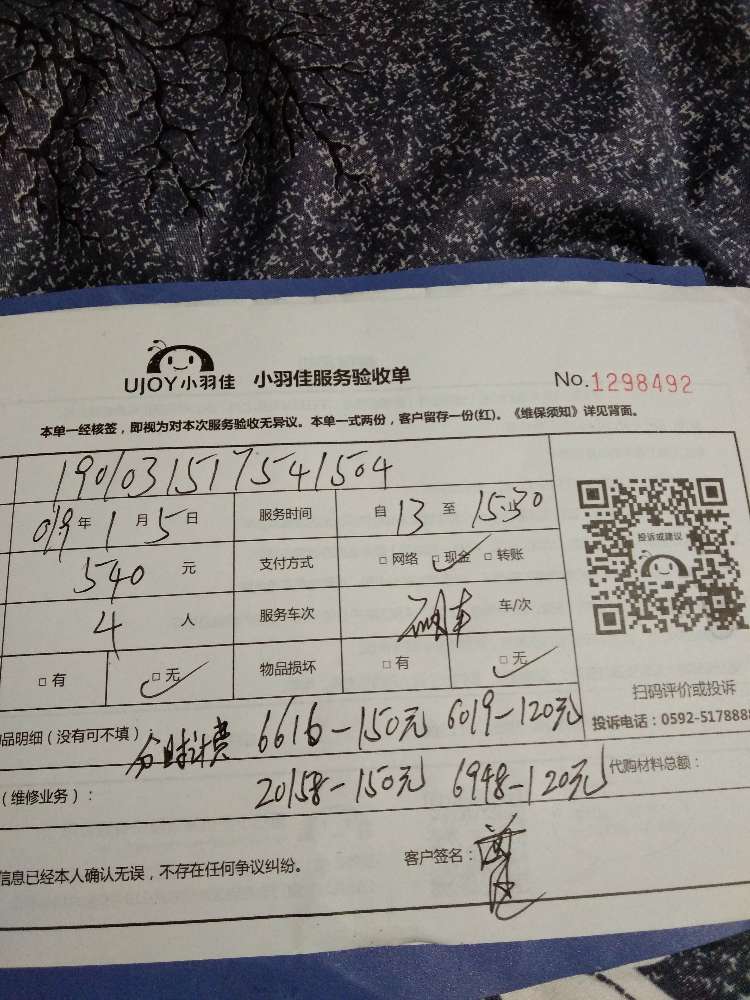 UJOY小羽佳 小羽佳服务验收单 No.1298492
本单一经核签，即视为对本次服务验收无异议。本单一式两份，客户留存一份(红)。《维保须知》详见背面。
1901031517541504
019年1月5日 服务时间 自13至15:30止
540元 支付方式 □网络 □现金 □转账
4人 服务车次 车/次
□有 □无 物品损坏 □有 □无
投诉或建议
扫码评价或投诉
投诉电话：0592-5178888
品明细（没有可不填） 分时计费 6616-150元 6019-120元
（维修业务）： 20158-150元 6948-120元 代购材料总额：
信息已经本人确认无误，不存在任何争议纠纷。 客户签名：